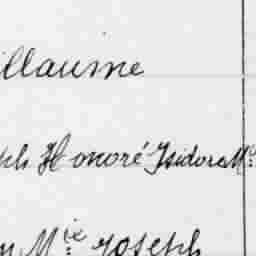 illaume
ph Honoré Isidore Mc
n Mix Joseph